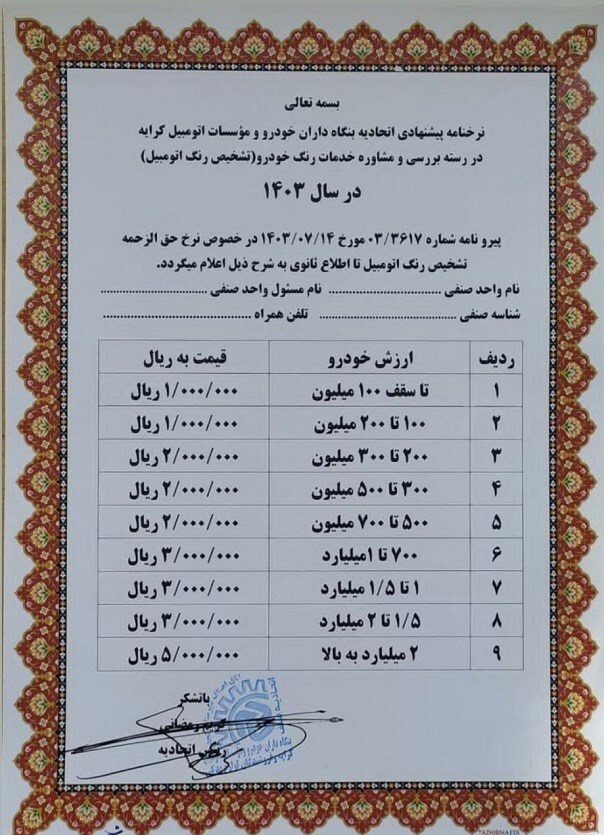 بسمه تعالی
نرخنامه پیشنهادی اتحادیه بنگاه داران خودرو و مؤسسات اتومبیل کرایه
در رسته بررسی و مشاوره خدمات رنگ خودرو(تشخیص رنگ اتومبیل)
در سال ۱۴۰۳
پیرو نامه شماره ۰۳/۳۶۱۷ مورخ ۱۴۰۳/۰۷/۱۴ در خصوص نرخ حق الزحمه
تشخیص رنگ اتومبیل تا اطلاع ثانوی به شرح ذیل اعلام میگردد.
نام واحد صنفی ................................ نام مسئول واحد صنفی ................................
شناسه صنفی ........................................ تلفن همراه ........................................
ردیف ارزش خودرو قیمت به ریال
۱ تا سقف ۱۰۰ میلیون ۱/۰۰۰/۰۰۰ ریال
۲ ۱۰۰ تا ۲۰۰ میلیون ۱/۰۰۰/۰۰۰ ریال
۳ ۲۰۰ تا ۳۰۰ میلیون ۲/۰۰۰/۰۰۰ ریال
۴ ۳۰۰ تا ۵۰۰ میلیون ۲/۰۰۰/۰۰۰ ریال
۵ ۵۰۰ تا ۷۰۰ میلیون ۲/۰۰۰/۰۰۰ ریال
۶ ۷۰۰ تا ۱میلیارد ۳/۰۰۰/۰۰۰ ریال
۷ ۱ تا ۱/۵ میلیارد ۳/۰۰۰/۰۰۰ ریال
۸ ۱/۵ تا ۲ میلیارد ۳/۰۰۰/۰۰۰ ریال
۹ ۲ میلیارد به بالا ۵/۰۰۰/۰۰۰ ریال
باتشکر
رمضانی
رئیس اتحادیه